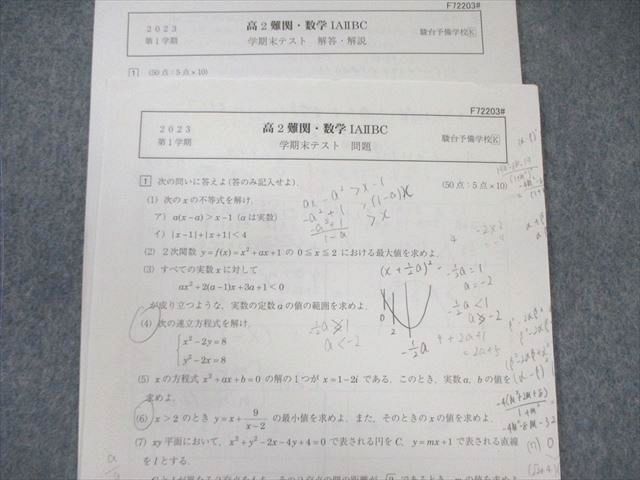 F72203#
2023
第1学期
高2難関・数学ⅠAⅡBC
学期末テスト 解答・解説
駿台予備学校K
1 (50点:5点×10)
F72203#
2023
第1学期
高2難関・数学ⅠAⅡBC
学期末テスト 問題
駿台予備学校K
1 次の問いに答えよ(答のみ記入せよ).
(50点:5点×10)
(1) 次のxの不等式を解け.
ア) a(x-a)>x-1 (aは実数)
イ) |x-1|+|x+1|<4
ax-a²>x-1
-a²+1>(1-a)x
-a²+1/1-a > x
(2) 2次関数 y=f(x)=x²+ax+1 の 0≦x≦2 における最大値を求めよ.
(3) すべての実数xに対して
ax²+2(a-1)x+3a+1<0
が成り立つような, 実数の定数aの値の範囲を求めよ.
(x+½a)²
-½a=1
a=-2
-½a<1
a>-2
-½a>1
a<-2
0
2
-½a
4+2a+1
=2a+5
(4) 次の連立方程式を解け.
x²-2y=8
y²-2x=8
(5) xの方程式 x²+ax+b=0 の解の1つが x=1-2i である. このとき, 実数a, bの値を
求めよ.
(6) x>2 のとき y=x+9/(x-2) の最小値を求めよ. また, そのときのxの値を求めよ.
(7) xy平面において, x²+y²-2x-4y+4=0 で表される円をC, y=mx+1 で表される直線
をlとする.